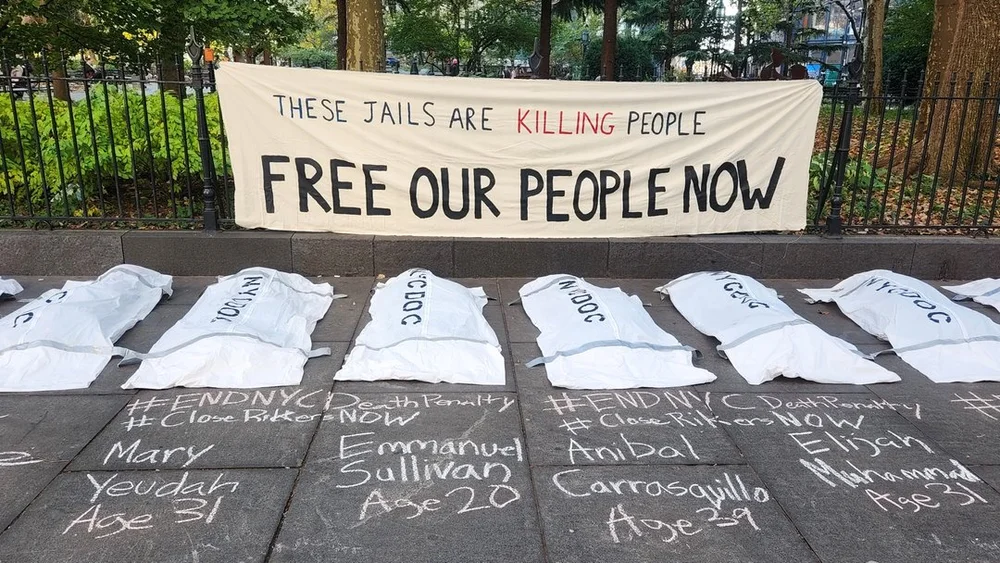 THESE JAILS ARE KILLING PEOPLE
FREE OUR PEOPLE NOW
NYCDOC
NYCDOC
NYCDOC
#ENDNYC Death Penalty
#Close RikersNOW
Mary
Yeudah
Age 31
Emmanuel
Sullivan
Age 20
#ENDNYC Death Penalty
#Close RikersNOW
Anibal
Carrasquillo
Age 39
Elijah
Muhammad
Age 31
#